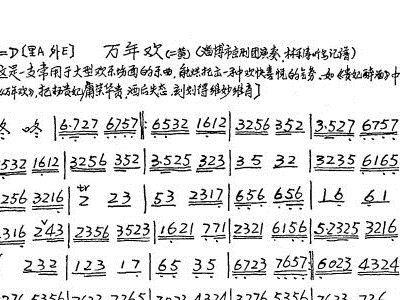 =D (里A 外E) 万年欢 (二黄) (淄博市京剧团演奏
这是一支常用于大型欢乐场面的乐曲, 能烘托出一种欢快喜悦的气氛. 如《贵妃醉酒》中
《万年欢》,把杨贵妃 雍荣华贵,酒后失态,刻划得维妙维肖]
咚 咚 | 6.727 6757 |: 6532 1612 | 3256 352 | 3.527 6757
532 1612 | 3256 352 | 3.525 323 | 35 32 | 3235 6165
256 3216 | 2 23 | 53 2317 | 656 656 | 16 61
316 243 | 2356 3523 | 1621 771 | 2321 6156 | 5.2325 3216
232 | 123 17 | 65 35 | 6723 7657 :| 6023 4324